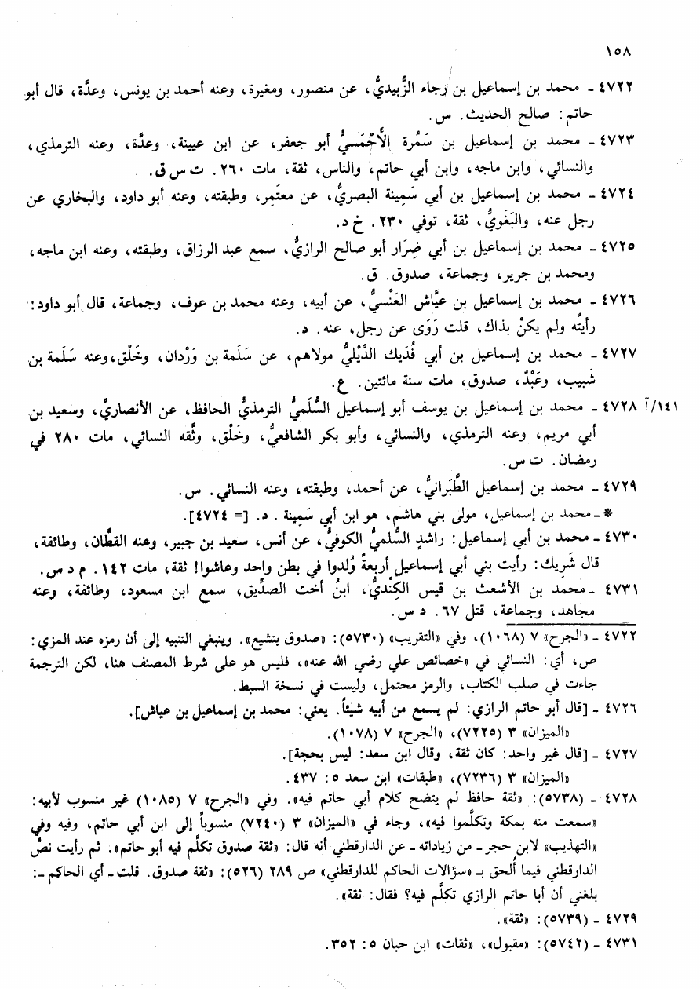 ١٥٨
٤٧٢٢ ـ محمد بن إسماعيل بن رجاء الزُّبيديُّ، عن منصور، ومغيرة، وعنه أحمد بن يونس، وعدَّة، قال أبو
حاتم: صالح الحديث. س.
٤٧٢٣ ـ محمد بن إسماعيل بن سَمُرة الأَحْمَسيُّ أبو جعفر، عن ابن عيينة، وعدَّة، وعنه الترمذي،
والنسائي، وابن ماجه، وابن أبي حاتم، والناس، ثقة، مات ٢٦٠. ت س ق.
٤٧٢٤ ـ محمد بن إسماعيل بن أبي سَمِينة البصريُّ، عن معتمِر، وطبقته، وعنه أبو داود، والبخاري عن
رجل عنه، والبَغَويُّ، ثقة، توفي ٢٣٠. خ د.
٤٧٢٥ ـ محمد بن إسماعيل بن أبي ضِرَار أبو صالح الرازيُّ، سمع عبد الرزاق، وطبقته، وعنه ابن ماجه،
ومحمد بن جرير، وجماعة، صدوق. ق.
٤٧٢٦ ـ محمد بن إسماعيل بن عيَّاش العَنْسيُّ، عن أبيه، وعنه محمد بن عوف، وجماعة، قال أبو داود:
رأيتُه ولم يكنْ بذاك، قلت رَوَى عن رجل، عنه. د.
٤٧٢٧ ـ محمد بن إسماعيل بن أبي فُدَيك الدِّيْليُّ مولاهم، عن سَلَمة بن وَرْدان، وخَلْق، وعنه سَلَمة بن
شَبيب، وعَبْدٌ، صدوق، مات سنة مائتين. ع.
١٤١/آ ٤٧٢٨ ـ محمد بن إسماعيل بن يوسف أبو إسماعيل السُّلَميُّ الترمذيُّ الحافظ، عن الأنصاريِّ، وسعيد بن
أبي مريم، وعنه الترمذي، والنسائي، وأبو بكر الشافعيُّ، وخَلْق، وثَّقه النسائي، مات ٢٨٠ في
رمضان. ت س.
٤٧٢٩ ـ محمد بن إسماعيل الطَّبَرانيُّ، عن أحمد، وطبقته، وعنه النسائي. س.
* ـ محمد بن إسماعيل، مولى بني هاشم، هو ابن أبي سَمِينة. د. [= ٤٧٢٤].
٤٧٣٠ ـ محمد بن أبي إسماعيل: راشدٍ السُّلميُّ الكوفيُّ، عن أنس، سعيد بن جبير، وعنه القطَّان، وطائفة،
قال شَرِيك: رأيت بني أبي إسماعيل أربعةً وُلدوا في بطن واحد وعاشوا! ثقة، مات ١٤٢. م د س.
٤٧٣١ ـ محمد بن الأشعث بن قيس الكِنْديُّ، ابنُ أخت الصدِّيق، سمع ابن مسعود، وطائفة، وعنه
مجاهد، وجماعة، قتل ٦٧. د س.
٤٧٢٢ ـ «الجرح» ٧ (١٠٦٨)، وفي «التقريب» (٥٧٣٠): «صدوق يتشيع». وينبغي التنبيه إلى أن رمزه عند المزي:
ص، أي: النسائي في «خصائص علي رضي الله عنه»، فليس هو على شرط المصنف هنا، لكن الترجمة
جاءت في صلب الكتاب، والرمز محتمل، وليست في نسخة السبط.
٤٧٢٦ ـ [قال أبو حاتم الرازي: لم يسمع من أبيه شيئاً. يعني: محمد بن إسماعيل بن عياش].
«الميزان» ٣ (٧٢٢٥)، «الجرح» ٧ (١٠٧٨).
٤٧٢٧ ـ [قال غير واحد: كان ثقة، وقال ابن سعد: ليس بحجة].
«الميزان» ٣ (٧٢٣٦)، «طبقات» ابن سعد ٥: ٤٣٧.
٤٧٢٨ ـ (٥٧٣٨): «ثقة حافظ لم يتضح كلام أبي حاتم فيه». وفي «الجرح» ٧ (١٠٨٥) غير منسوب لأبيه:
«سمعت منه بمكة وتكلَّموا فيه»، وجاء في «الميزان» ٣ (٧٢٤٠) منسوباً إلى ابن أبي حاتم، وفيه وفي
«التهذيب» لابن حجر ـ من زياداته ـ عن الدارقطني أنه قال: «ثقة صدوق تكلَّم فيه أبو حاتم». ثم رأيت نصَّ
الدارقطني فيما أُلحق بـ «سؤالات الحاكم للدارقطني» ص ٢٨٩ (٥٢٦): «ثقة صدوق. قلت ـ أي الحاكم ـ:
بلغني أن أبا حاتم الرازي تكلَّم فيه؟ فقال: ثقة».
٤٧٢٩ ـ (٥٧٣٩): «ثقة».
٤٧٣١ ـ (٥٧٤٢): «مقبول»، «ثقات» ابن حبان ٥: ٣٥٢.